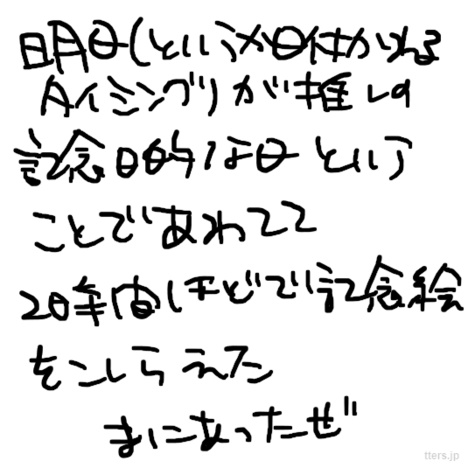 明日(というか日付かわる
タイミング)が推しの
記念日的な日という
ことであわてて
20年間ほどで記念絵
をこしらえた
まにあったぜ
tters.jp